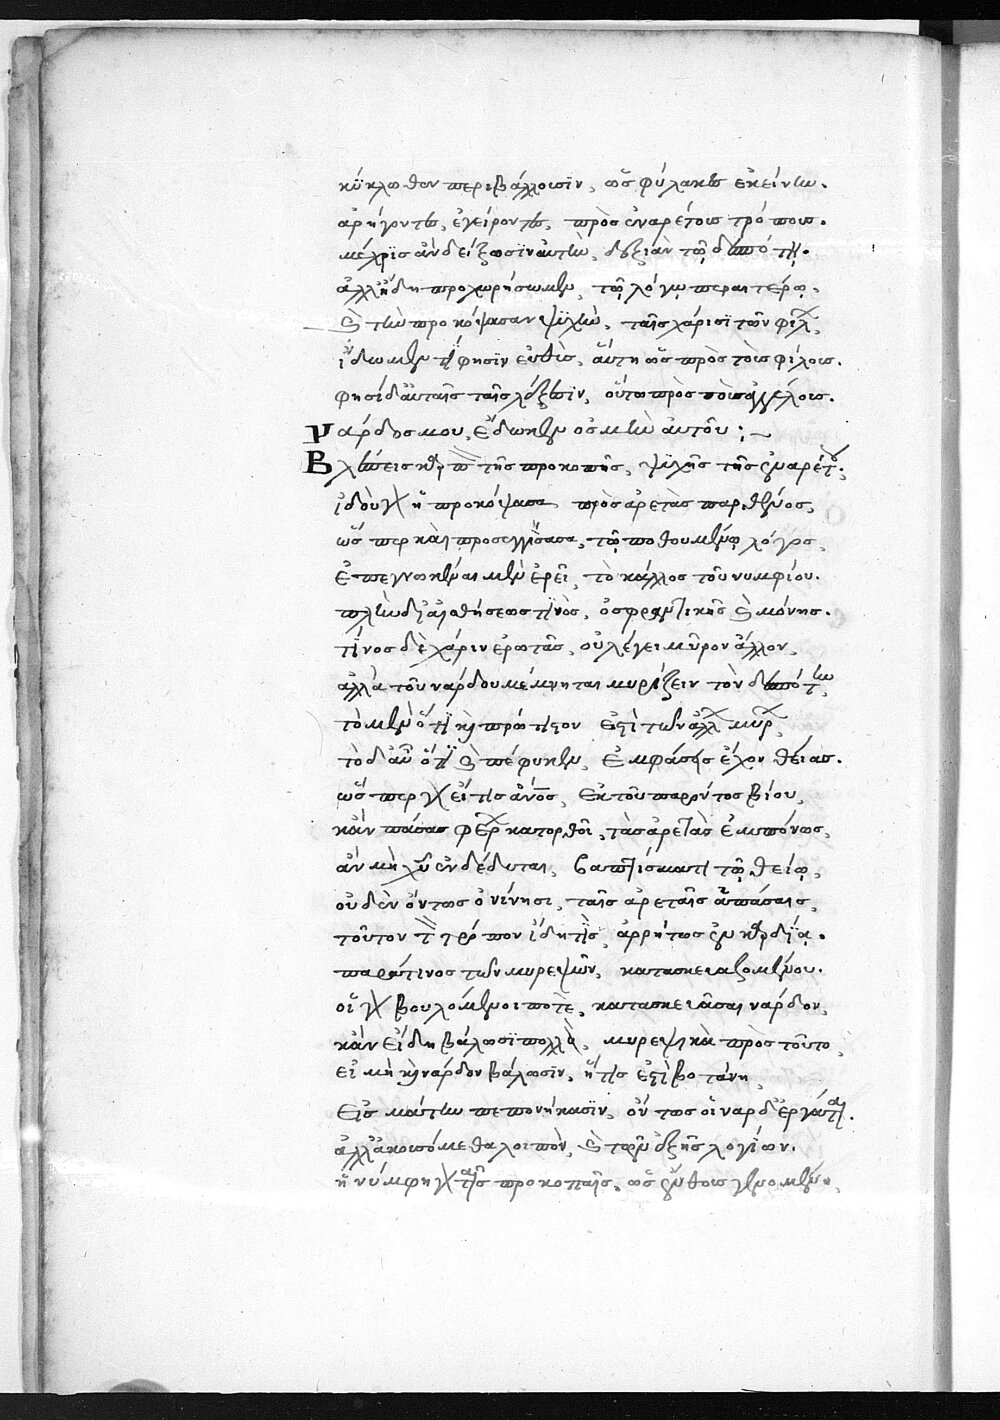 κύκλωθεν περιβάλλουσϊν, ὡς φύλακες ἐκείνην.
ἀρήγοντες, ἐγείροντες, πρὸς ἐναρέτους τρόπους.
μέχρις ἂν δείξωσϊν αὐτὴν, δεξιὰν τῷ δεσπότῃ.
ἀλλ' ἤδη προχωρήσωμεν, τῷ λόγῳ περαιτέρω.
καὶ τὴν προκόψασαν ψϋχὴν, ταῖς χάρισϊ τῶν φίλ
ἴδωμεν τί φησϊν εὐθὺς, αὕτη ὡς πρὸς τοὺς φίλους.
φησὶ δ' αὐταῖς ταῖς λέξεσϊν, οὕτω πρὸς τοὺς ἀγγέλους.
Νάρδος μου, ἔδωκεν ὀσμὴν αὐτοῦ :~
Βλέπεις κατὰ τῆς προκοπῆς, ψϋχῆς τῆς ἐναρέτου.
ἰδοὺ γὰρ ἡ προκόψασα πρὸς ἀρετὰς παρθένος,
ὥσπερ καὶ προσεγγίσασα, τῷ ποθουμένῳ λόγος,
ἐπεγνωκέναι μὲν ἐρεῖ, τὸ κάλλος τοῦ νυμφίου.
πλὴν δι' αἰσθήσεως τϊνὸς, ὀσφραντικῆς καὶ μόνης.
τίνος δὲ χάριν ἐρωτᾶς, οὐ λέγει μῦρον ἄλλον,
ἀλλὰ τοῦ νάρδου μέμνηται μυρίζειν τὸν δεσπότην
τὸ μὲν ὅτϊ καὶ πρώτιστον ἐστὶ τῶν ἄλλ μύρ
τὸ δ' αὖ ὅτϊ καὶ πέφυκεν, ἐμφάσεις ἔχον θείας.
ὥσπερ γὰρ εἴ τις ἄνος, ἐκ τοῦ παρόντος βίου,
κἂν πάσας φέρ κατορθοῖ, τὰς ἀρετὰς ἐμπόνως,
ἂν μὴ χν ἐνδέδυται, βαπτίσματι τῷ θείῳ,
οὐδὲν ὄντως ὀνίνησι, ταῖς ἀρεταῖς ἁπάσαις,
τοῦτον τ τρόπον ἴδῃ τϊς, ἀρρήτως ἐν καρδίᾳ.
παρά τινος τῶν μυρεψῶν, κατασκευαζομένου.
οἱ γὰρ βουλόμενοι ποτὲ, κατασκευᾶσαι νάρδον,
κἂν εἴδη βάλωσϊ πολλὰ, μυρεψικὰ πρὸς τοῦτο,
εἰ μὴ καὶ νάρδον βάλωσϊν, ἥτις ἐστὶ βοτάνη,
εἰς μάτην πεπονήκασϊν, ὄντως οἱ ναρδεργάται.
ἀλλ' ἀκουσόμεθα λοιπὸν, καὶ τῶν ἑξῆς λογίων.
ἡ νύμφη γὰρ ταῖς προκοπαῖς, ὡς ἔνθους γενομένη,